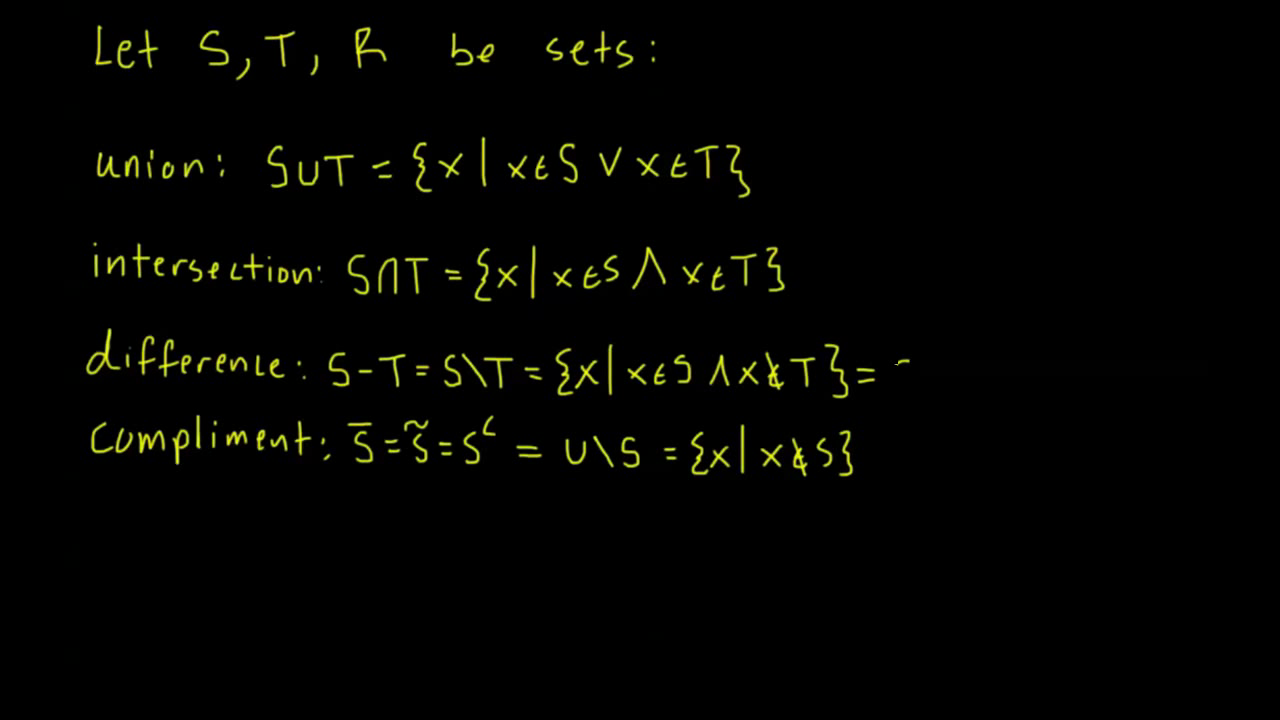 Let S, T, R be sets:
union: S∪T = {x | x∈S ∨ x∈T}
intersection: S∩T = {x | x∈S ∧ x∈T}
difference: S-T = S\T = {x | x∈S ∧ x∉T} =
compliment: S̅ = S̃ = Sᶜ = U\S = {x | x∉S}